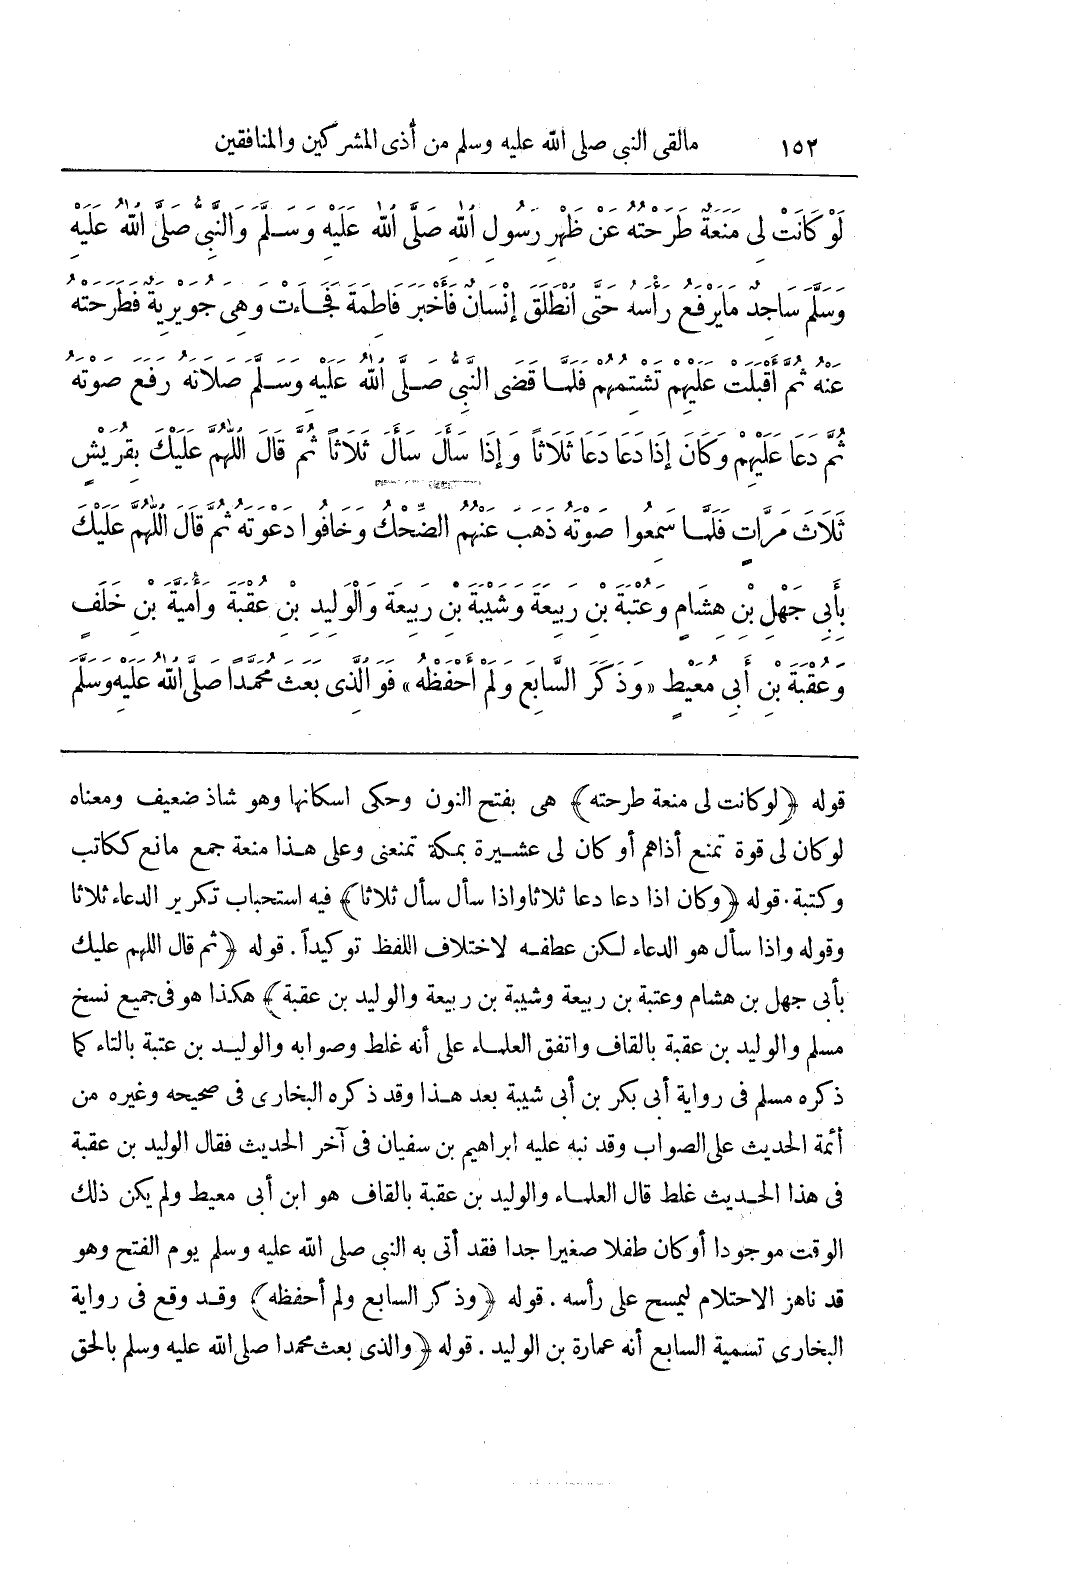 ١٥٢ مالقى النبى صلى الله عليه وسلم من أذى المشركين والمنافقين
لَوْ كَانَتْ لِى مَنَعَةٌ طَرَحْتُهُ عَنْ ظَهْرِ رَسُولِ اللهِ صَلَّى اللهُ عَلَيْهِ وَسَلَّمَ وَالنَّبِىُّ صَلَّى اللهُ عَلَيْهِ
وَسَلَّمَ سَاجِدٌ مَايَرْفَعُ رَأْسَهُ حَتَّى انْطَلَقَ إِنْسَانٌ فَأَخْبَرَ فَاطِمَةَ فَجَاءَتْ وَهِىَ جُوَيْرِيَةٌ فَطَرَحَتْهُ
عَنْهُ ثُمَّ أَقْبَلَتْ عَلَيْهِمْ تَشْتِمُهُمْ فَلَمَّا قَضَى النَّبِىُّ صَلَّى اللهُ عَلَيْهِ وَسَلَّمَ صَلَاتَهُ رَفَعَ صَوْتَهُ
ثُمَّ دَعَا عَلَيْهِمْ وَكَانَ إِذَا دَعَا دَعَا ثَلَاثًا وَإِذَا سَأَلَ سَأَلَ ثَلَاثًا ثُمَّ قَالَ اللّٰهُمَّ عَلَيْكَ بِقُرَيْشٍ
ثَلَاثَ مَرَّاتٍ فَلَمَّا سَمِعُوا صَوْتَهُ ذَهَبَ عَنْهُمُ الضِّحْكُ وَخَافُوا دَعْوَتَهُ ثُمَّ قَالَ اللّٰهُمَّ عَلَيْكَ
بِأَبِى جَهْلِ بْنِ هِشَامٍ وَعُتْبَةَ بْنِ رَبِيعَةَ وَشَيْبَةَ بْنِ رَبِيعَةَ وَالْوَلِيدِ بْنِ عُقْبَةَ وَأُمَيَّةَ بْنِ خَلَفٍ
وَعُقْبَةَ بْنِ أَبِى مُعَيْطٍ «وَذَكَرَ السَّابِعَ وَلَمْ أَحْفَظْهُ» فَوَالَّذِى بَعَثَ مُحَمَّدًا صَلَّى اللهُ عَلَيْهِ وَسَلَّمَ
قوله ﴿لوكانت لى منعة طرحته﴾ هى بفتح النون وحكى اسكانها وهو شاذ ضعيف ومعناه
لوكان لى قوة تمنع أذاهم أو كان لى عشيرة بمكة تمنعنى وعلى هذا منعة جمع مانع ككاتب
وكتبة. قوله ﴿وكان اذا دعا دعا ثلاثا واذا سأل سأل ثلاثا﴾ فيه استحباب تكرير الدعاء ثلاثا
وقوله واذا سأل هو الدعاء لكن عطفه لاختلاف اللفظ توكيداً. قوله ﴿ثم قال اللهم عليك
بأبى جهل بن هشام وعتبة بن ربيعة وشيبة بن ربيعة والوليد بن عقبة﴾ هكذا هو فى جميع نسخ
مسلم والوليد بن عقبة بالقاف واتفق العلماء على أنه غلط وصوابه والوليد بن عتبة بالتاء كما
ذكره مسلم فى رواية أبى بكر بن أبى شيبة بعد هذا وقد ذكره البخارى فى صحيحه وغيره من
أئمة الحديث على الصواب وقد نبه عليه ابراهيم بن سفيان فى آخر الحديث فقال الوليد بن عقبة
فى هذا الحديث غلط قال العلماء والوليد بن عقبة بالقاف هو ابن أبى معيط ولم يكن ذلك
الوقت موجودا أو كان طفلا صغيرا جدا فقد أتى به النبى صلى الله عليه وسلم يوم الفتح وهو
قد ناهز الاحتلام ليمسح على رأسه. قوله ﴿وذكر السابع ولم أحفظه﴾ وقد وقع فى رواية
البخارى تسمية السابع أنه عمارة بن الوليد. قوله ﴿والذى بعث محمدا صلى الله عليه وسلم بالحق